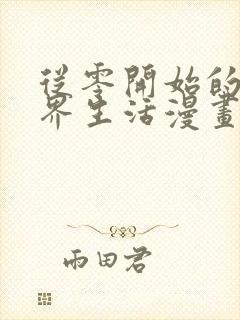 從零開始的
界生活漫畫
雨田君